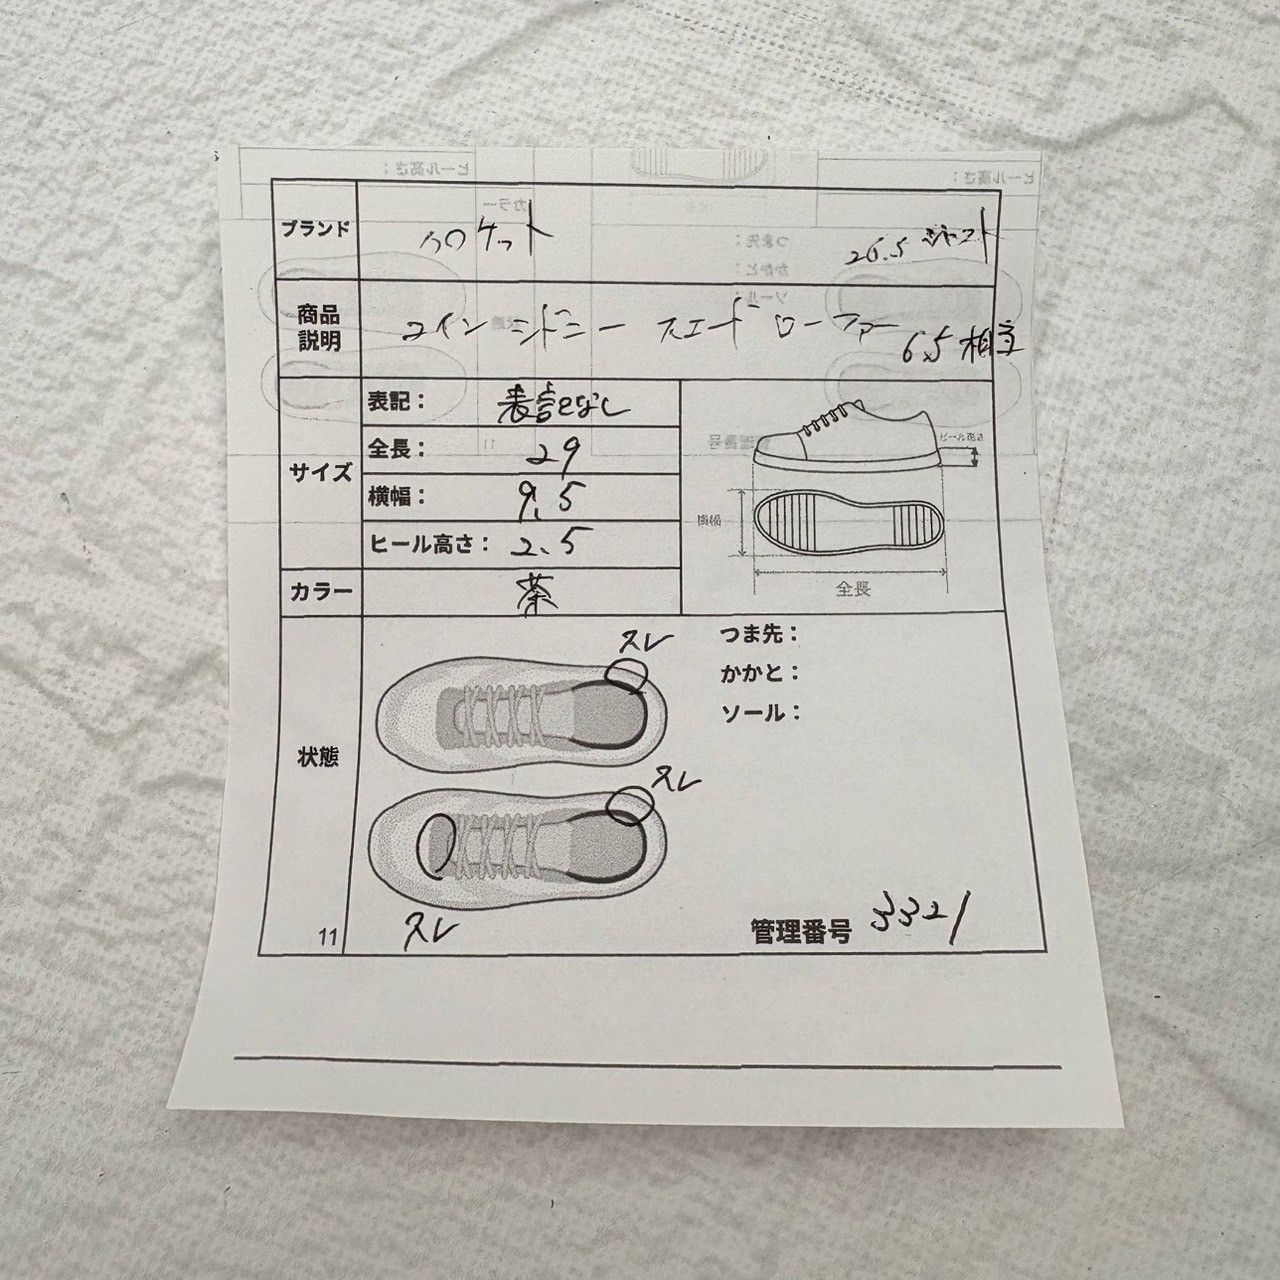 ブランド クロケット 26.5 ジャスト
商品説明 コイン シドニー スエード ローファー 6.5 相当
サイズ
表記： 表記なし
全長： 29
横幅： 9.5
ヒール高さ： 2.5
ヒール高さ
横幅
全長
カラー 茶
状態
スレ
スレ
スレ
つま先：
かかと：
ソール：
管理番号 3321
11